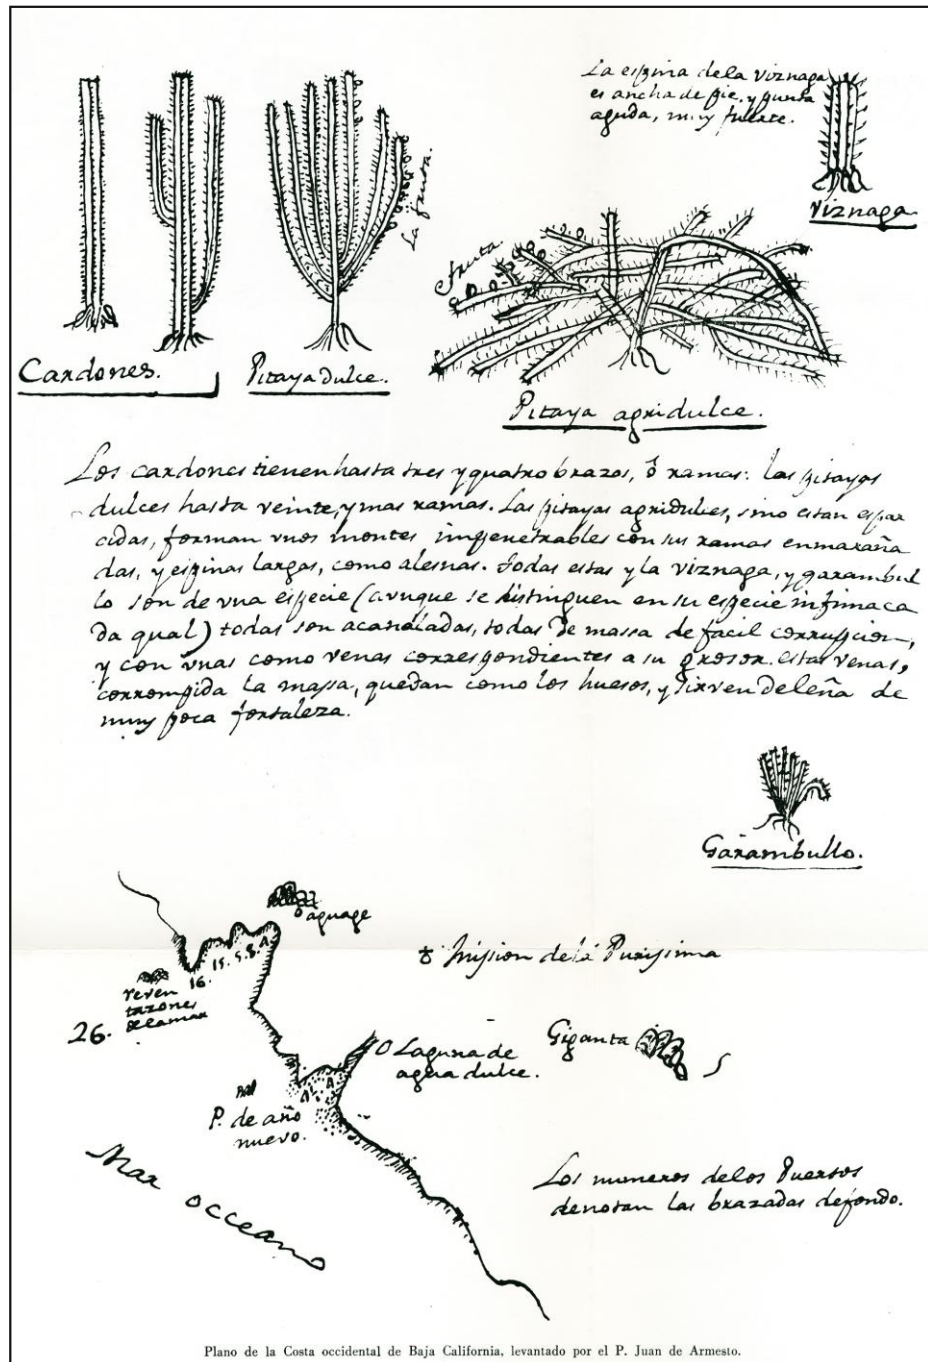 La espina dela viznaga
es ancha de pie, y punta
aguda, muy fuerte.
Viznaga
La fruta.
fruta
Cardones.
Pitaya dulce.
Pitaya agridulce.
Los cardones tienen hasta tres y quatro brazos, ô ramas: las pitayas
dulces hasta veinte, y mas ramas. Las pitayas agridulces, sino estan espar
cidas, forman vnos montes impenetrables con sus ramas enmaraña
das, y espinas largas, como alesnas. Todas estas y la viznaga, y garambul
lo son de vna especie (avnque se distinguen en su especie infima ca
da qual) todas son acanaladas, todas de massa de facil corrupcion,
y con vnas como venas correspondientes a su grosor. estas venas,
corrompida la massa, quedan como los huesos, y sirven deleña de
muy poca fortaleza.
Garambullo.
aguage
A
5. 5. 8.
15.
16.
Reven
tazones
delamar
26.
Mission dela Purissima
Giganta
Laguna de
agua dulce.
A
P. de año
nuevo.
Mar occeano
Los numeros delos Puertos
denotan las brazadas defondo.
Plano de la Costa occidental de Baja California, levantado por el P. Juan de Armesto.